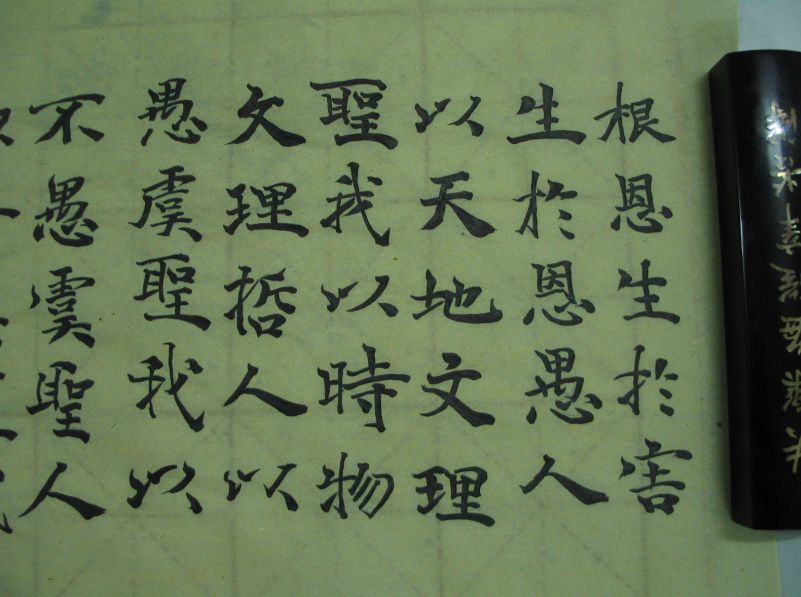 根恩生於害
生於恩愚人
以天地文理
聖我以時物
文理哲人以
愚虞聖我以
不愚虞聖人